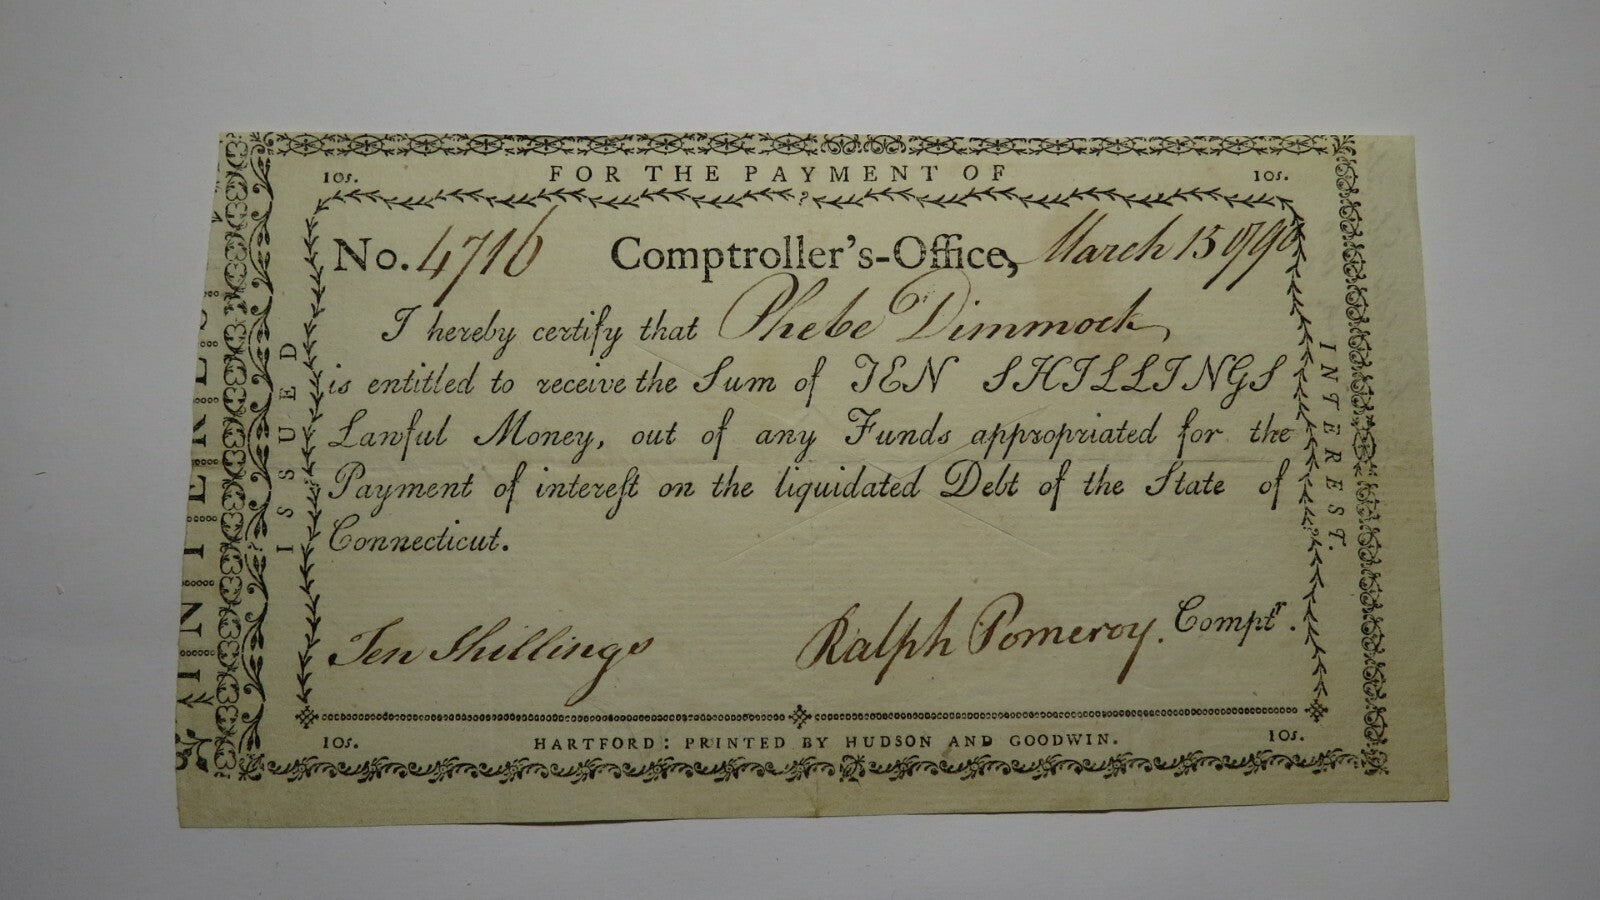 10s. FOR THE PAYMENT OF 10s.
No. 4716 Comptroller's-Office, March 15 1790
I hereby certify that Phebe Dimmock,
is entitled to receive the Sum of TEN SHILLINGS
Lawful Money, out of any Funds appropriated for the
Payment of intereſt on the liquidated Debt of the State of
Connecticut.
Ten Shillings Ralph Pomeroy. Comptr.
10s. HARTFORD: PRINTED BY HUDSON AND GOODWIN. 10s.
ISSUED
INTEREST.